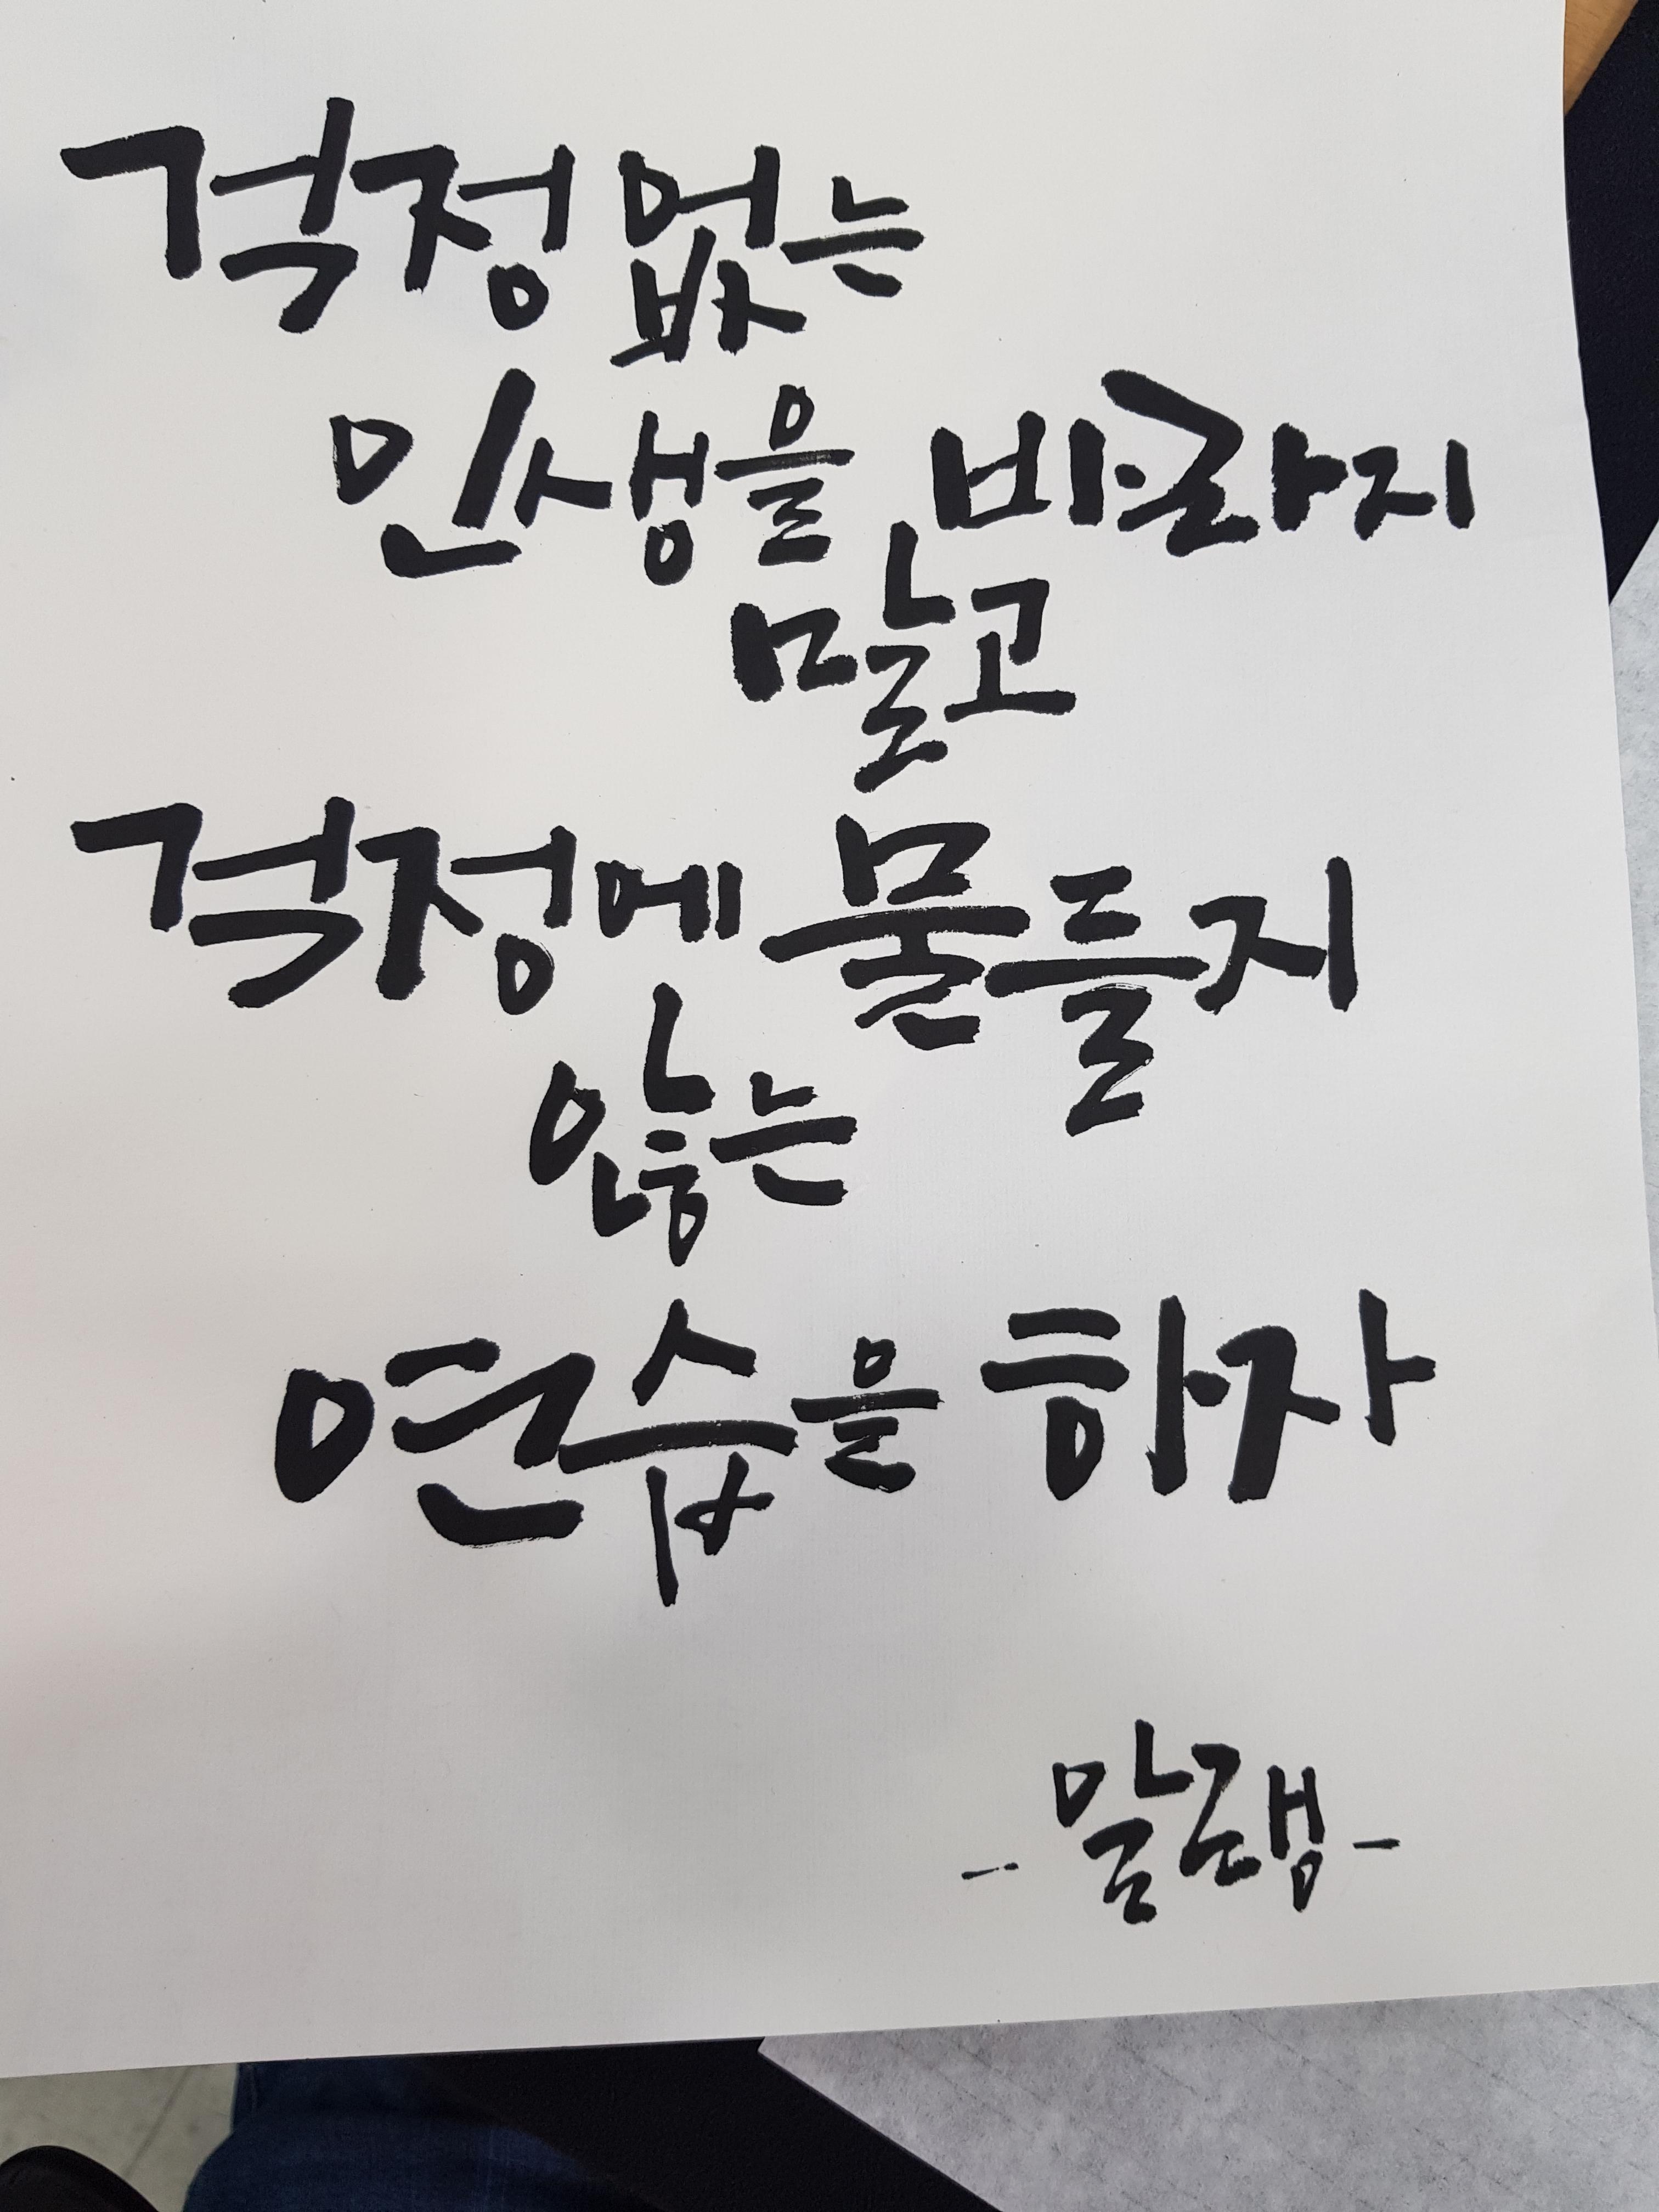 걱정 없는
인생을 바라지
말고
걱정에 물들지
않는
연습을 하자
- 알랭 -